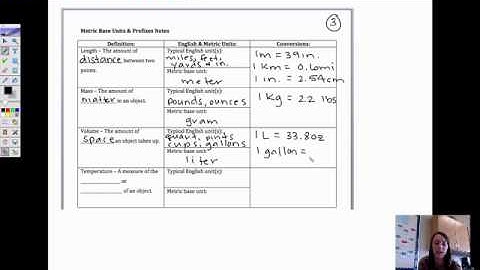 3
Metric Base Units & Prefixes Notes
Definition:
English & Metric Units:
Conversions:
Length – The amount of
distance between two
points.
Typical English unit(s):
miles, feet,
yards & in.
Metric base unit:
meter
1m = 39in.
1 Km = 0.6mi
1 in. = 2.54cm
Mass – The amount of
matter in an object.
Typical English unit(s):
pounds, ounces
Metric base unit:
gram
1 Kg = 2.2 lbs
Volume – The amount of
space an object takes up.
Typical English unit(s):
quart, pints
cups, gallons
Metric base unit:
liter
1 L = 33.8oz
1 gallon =
Temperature – A measure of the
____________ or
____________ of an object.
Typical English unit(s):
Metric base unit: